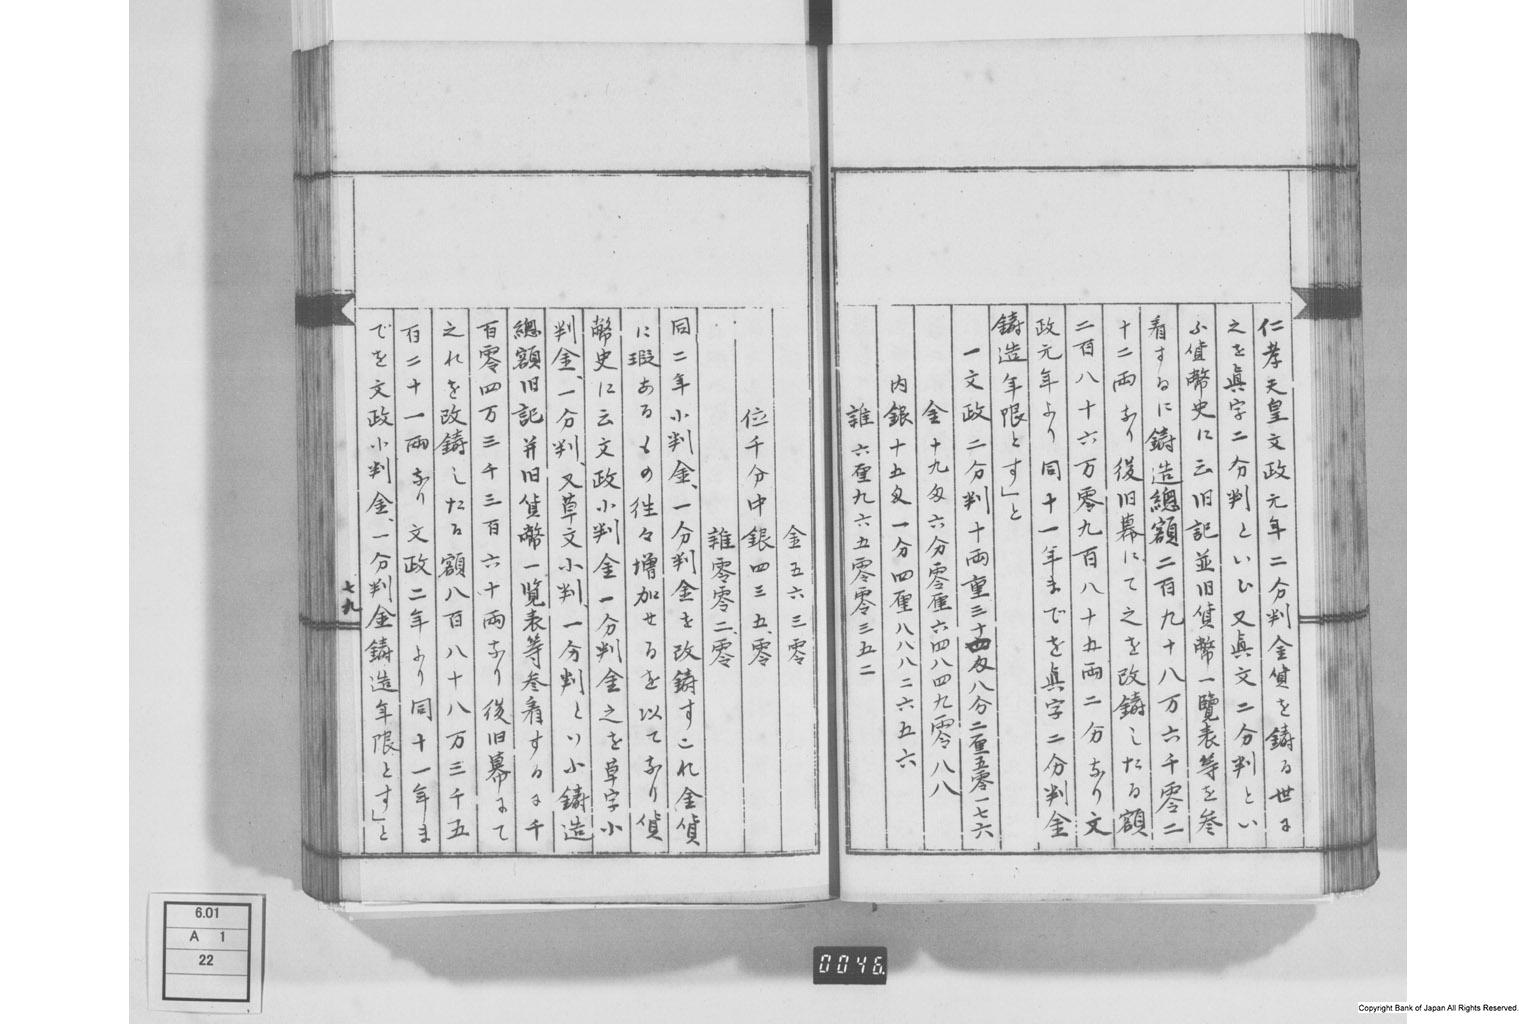 仁孝天皇文政元年二分判金貨を鋳る世に
之を眞字二分判といひ又眞文二分判とい
ふ貨幣史に云旧記並旧貨幣一覽表等を参
看するに鋳造總額二百九十八万六千零二
十二両なり後旧幕にて之を改鋳したる額
二百八十六万零九百八十五両二分なり文
政元年より同十一年までを眞字二分判金
鋳造年限とす」と
一文政二分判十両重三十四匁八分二厘五零一七六
金十九匁六分零厘六四八四九零八八
内銀十五匁一分四厘八八八二六五六
雜六厘九六五零零三五二
金五六三零
位千分中銀四三五、零
雜零零二、零
同二年小判金、一分判金を改鋳すこれ金貨
に瑕あるもの往々増加せるを以てなり貨
幣史に云文政小判金一分判金之を草字小
判金、一分判、又草文小判、一分判といふ鋳造
總額旧記并旧貨幣一覽表等参看するに千
百零四万三千三百六十両なり後旧幕にて
之れを改鋳したる額八百八十八万三千五
百二十一両なり文政二年より同十一年ま
でを文政小判金、一分判金鋳造年限とす」と
七九
6.01
A 1
22
0046
Copyright Bank of Japan All Rights Reserved.